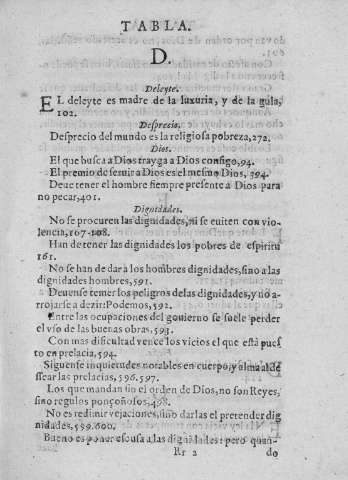 TABLA.
D.
Deleyte.
EL deleyte es madre de la luxuria, y de la gula,
102.
Desprecio.
Desprecio del mundo es la religiosa pobreza, 272.
Dios.
El que busca a Dios trayga a Dios consigo, 94.
El premio de seruir a Dios es el mesmo Dios, 394.
Deue tener el hombre siempre presente a Dios para
no pecar, 401.
Dignidades.
No se procuren las dignidades, ni se euiten con vio-
lencia, 107-108.
Han de tener las dignidades los pobres de espiritu
161.
No se han de dar a los hombres dignidades, sino a las
dignidades hombres, 591.
Deuense temer los peligros de las dignidades, y no a-
rrojarse a dezir: Podemos, 592.
Entre las ocupaciones del gouierno se suele perder
el vso de las buenas obras, 593.
Con mas dificultad vence los vicios el que está pues
to en prelacia, 594.
Siguense inquietudes notables en cuerpo, y alma al de
ssear las prelacias, 596. 597.
Los que mandan sin el orden de Dios, no son Reyes,
sino regulos ponçoñosos, 498.
No es redimir vejaciones, sino darlas el pretender dig
nidades, 599. 600.
Bueno es poner escusa a las dignidades: pero quan-
Rr 2
do